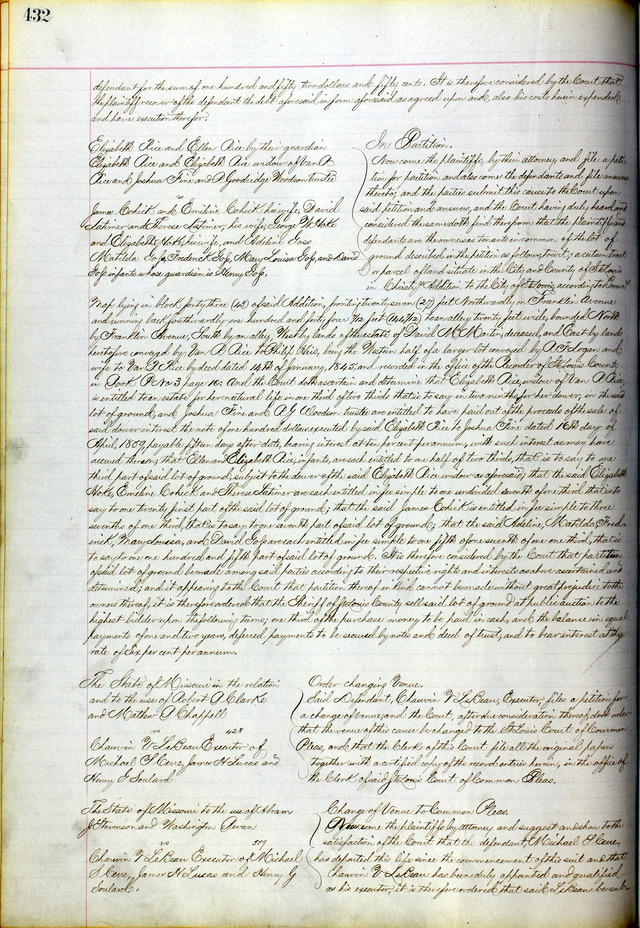 432
defendant for the sum of one hundred and fifty two dollars and fifty cents. It is therefore considered by the Court that
the plaintiff recover of the defendant the debt aforesaid, in form aforesaid as agreed upon and also his costs herein expended
and have execution therefor.
Elizabeth Rice and Ellen Rice by their guardian
Elizabeth Rice and Elizabeth Rice widow of Van R
Rice and Joshua Fine and A Goodridge Woodson trustee
vs
James Cohick and Emeline Cohick his wife, David
Latimer and Therese Latimer, his wife, George W Hoke
and Elizabeth Hoke, his wife, and Adeline Goss
Matilda Goss, Frederick Goss, Mary Louisa Goss, and David
Goss infants whose guardian is Henry Goss.
In Partition.
Now come the plaintiffs, by their attorney and file a peti-
tion for partition and also come the defendants and file answers
thereto, and the parties submit this cause to the Court upon
said petition and answers, and the Court having duly heard and
considered the same doth find therefrom that the plaintiffs and
defendants are the owners as tenants in common of the lot of
ground described in the petition as follows, to wit; a certain tract
or parcel of land situate in the City and County of St Louis
in Christy's Addition to the City of St Louis, according to
map lying in block forty three (43) of said Addition, fronting twenty seven (27) feet Northwardly on Franklin Avenue
and running back southwardly one hundred and forty four 1/2 feet (144 1/2) to an alley twenty feet wide, bounded North
by Franklin Avenue, South by an alley, West by lands of the estate of David M Martin, deceased, and East by lands
heretofore conveyed by Van R Rice to Philip Heis, being the Western half of a larger lot conveyed by A F Logan and
wife to Van R Rice by deed dated 14th of January, 1845, and recorded in the office of the Recorder of St Louis County
in Book P No 3 page 10: And the Court doth ascertain and determine that Elizabeth Rice, widow of Van R Rice,
is entitled to an estate for her natural life in one third of two thirds that is to say in two ninths for her dower, in the said
lot of ground, and Joshua Fine and A G Woodson trustee are entitled to have paid out of the proceeds of the sale of
said dower interest the note of one hundred dollars executed by said Elizabeth Rice to Joshua Fine dated 16th day of
April 1859, payable fifteen days after date, bearing interest at ten percent per annum, with such interest as may have
accrued thereon; that Ellen and Elizabeth Rice, infants, are each entitled to one half of two thirds, that is to say to one
third part of said lot of ground, subject to the dower of the said Elizabeth Rice widow as aforesaid; that the said Elizabeth
Hoke, Emeline Cohick and Therese Latimer are each entitled in fee simple to one undivided seventh of one third, that is to
say to one twenty first part of the said lot of ground; that the said James Cohick is entitled in fee simple to three
sevenths of one third, that is to say to one seventh part of said lot of ground; that the said Adeline, Matilda, Fred-
erick, Mary Louisa, and David Goss are each entitled in fee simple to one fifth of one seventh of one third, that is
to say to one one hundred and fifth part of said lot of ground. It is therefore considered by the Court that partition
of said lot of ground be made among said parties according to their respective rights and interests as above ascertained and
determined; and it appearing to the Court that partition thereof in kind cannot be made without great prejudice to the
owners thereof, it is therefore ordered that the Sheriff of St Louis County sell said lot of ground at public auction to the
highest bidder upon the following terms; one third of the purchase money to be paid in cash, and the balance in equal
payments of one and two years, deferred payments to be secured by notes and deed of trust, and to bear interest at the
rate of Six per cent per annum.
The State of Missouri in the relation
and to the use of Robert A Clarke
and Mathew A Chappell
vs 428
Chauvin V LeBeau Executor of
Michael S Cerre, James H Lucas and
Henry G Soulard
Order changing Venue.
Said Defendant, Chauvin V LeBeau, Executor, files a petition for
a change of venue, and the Court, after due consideration thereof, doth order
that the venue of this cause be changed to the St Louis Court of Common
Pleas, and that the Clerk of this Court file all the original papers
together with a certified copy of the record entries herein, in the office of
the Clerk of said St Louis Court of Common Pleas.
The State of Missouri to the use of Abram
J Stevenson and Washington Swan
vs 509
Chauvin V LeBeau Executor of Michael
S Cerre, James H Lucas and Henry G
Soulard.
Change of Venue to Common Pleas.
Now come the plaintiffs by attorney and suggest and show to the
satisfaction of the Court that the defendant, Michael S Cerre,
has departed this life since the commencement of this suit and that
Chauvin V LeBeau has been duly appointed and qualified
as his executor, it is therefore ordered that said LeBeau be sub-